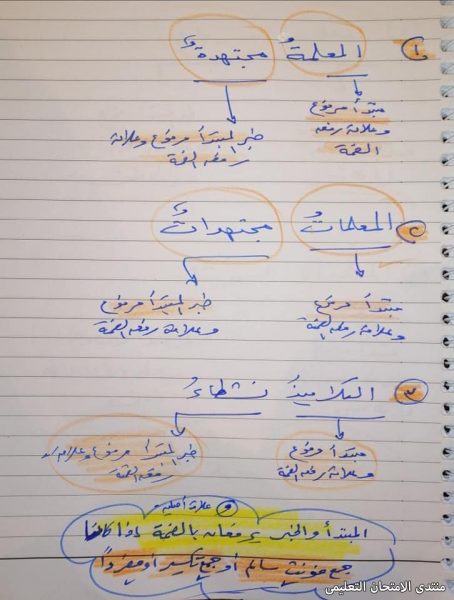 ١ المعلمةُ مجتهدةٌ
مبتدأ مرفوع
وعلامة رفعه
الضمة
خبر المبتدأ مرفوع وعلامة
رفعه الضمة
٢ المعلماتُ مجتهداتٌ
مبتدأ مرفوع
وعلامة رفعه الضمة
خبر المبتدأ مرفوع
وعلامة رفعه الضمة
٣ التلاميذُ نشطاءُ
مبتدأ مرفوع
وعلامة رفعه الضمة
خبر المبتدأ مرفوع وعلامة
رفعه الضمة
علامة أصلية
المبتدأ والخبر يرفعان بالضمة إذا كانا
جمع مؤنث سالم أو جمع تكسير أو مفردًا
منتدى الامتحان التعليمي